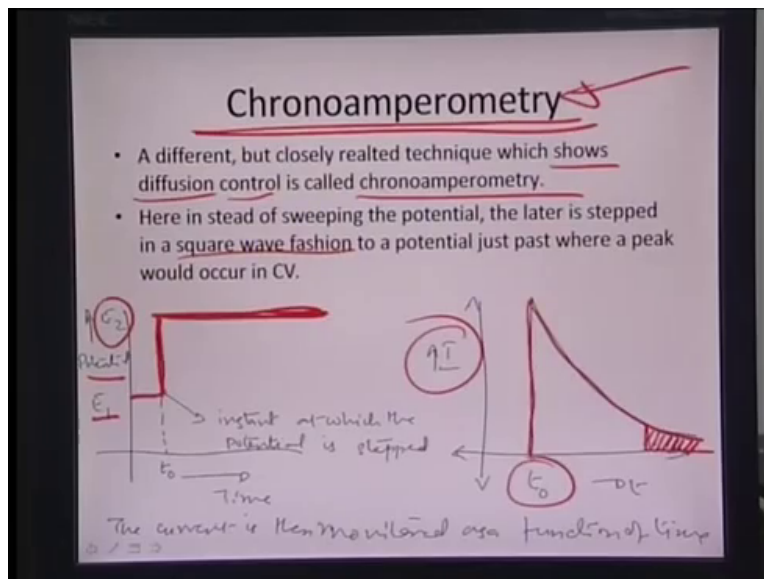 Chronoamperometry
• A different, but closely realted technique which shows
diffusion control is called chronoamperometry.
• Here in stead of sweeping the potential, the later is stepped
in a square wave fashion to a potential just past where a peak
would occur in CV.
E2
Potential
E1
instant at which the
potential is stepped
t0
Time
I
t0
t
The current is then monitored as a function of time